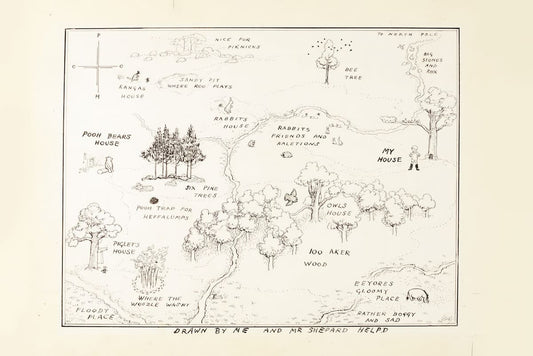 P
O
O
H
NICE FOR
PIKNICKS
TO NORTH POLE
BIG
STONES
AND
ROX
BEE
TREE
SANDY PIT
WHERE ROO PLAYS
KANGAS
HOUSE
RABBITS
HOUSE
RABBITS
FRIENDS AND
RALETIONS
POOH BEARS
HOUSE
MY
HOUSE
SIX PINE
TREES
POOH TRAP FOR
HEFFALUMPS
OWLS
HOUSE
PIGLETS
HOUSE
100 AKER
WOOD
EEYORES
GLOOMY
PLACE
WHERE THE
WOOZLE WASNT
FLOODY
PLACE
RATHER BOGGY
AND SAD
DRAWN BY ME AND MR SHEPARD HELPD